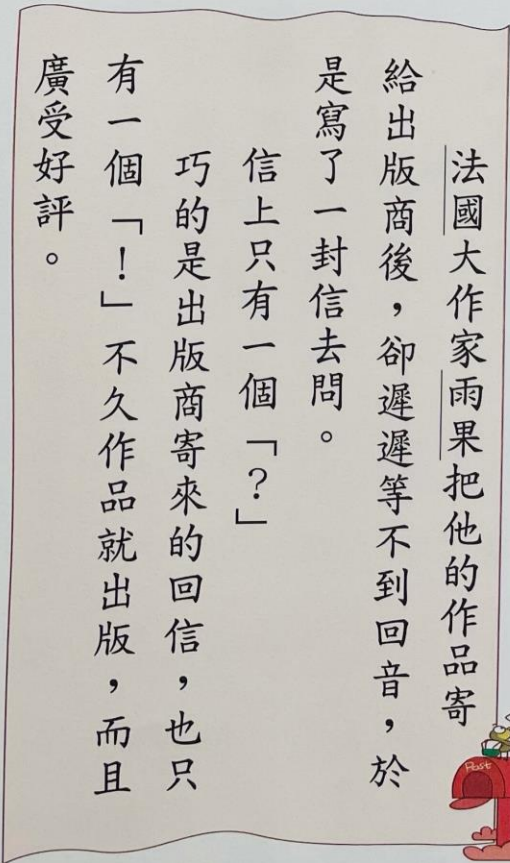 法國大作家雨果把他的作品寄
給出版商後，卻遲遲等不到回音，於
是寫了一封信去問。
信上只有一個「？」
巧的是出版商寄來的回信，也只
有一個「！」不久作品就出版，而且
廣受好評。
Post